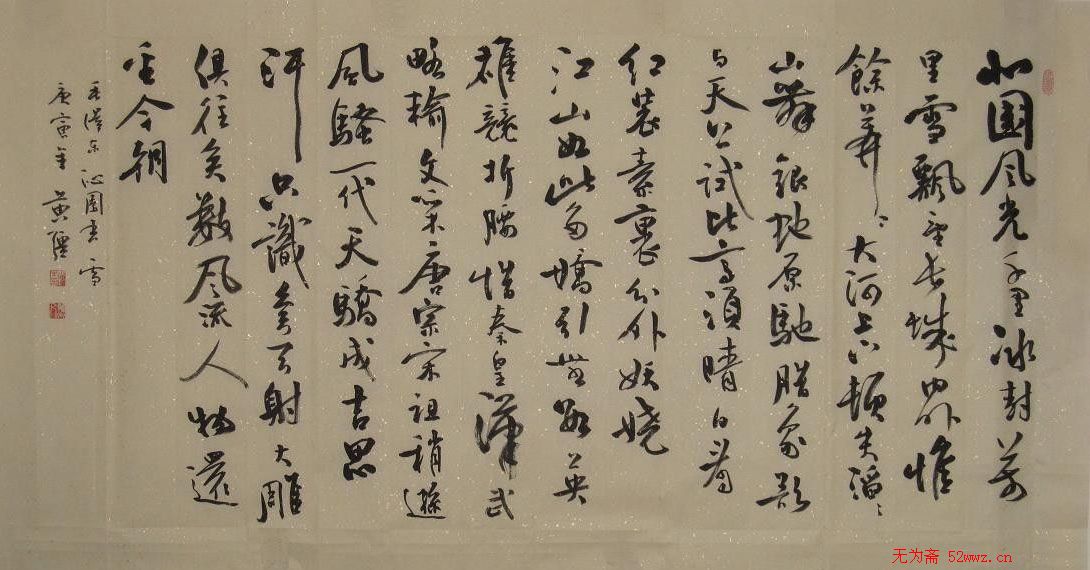 北國风光千里冰封萬
里雪飘望长城内外惟
餘莽〻大河上下顿失滔〻
山舞银蛇原驰腊象欲
与天公试比高须晴日看
红装素裹分外妖娆
江山如此多嬌引無数英
雄競折腰惜秦皇漢武
略输文采唐宗宋祖稍遜
风騷一代天驕成吉思
汗只識弯弓射大雕
俱往矣数风流人物還
看今朝
毛澤东沁園春雪
庚寅年黄
无为斋 52wwz.cn